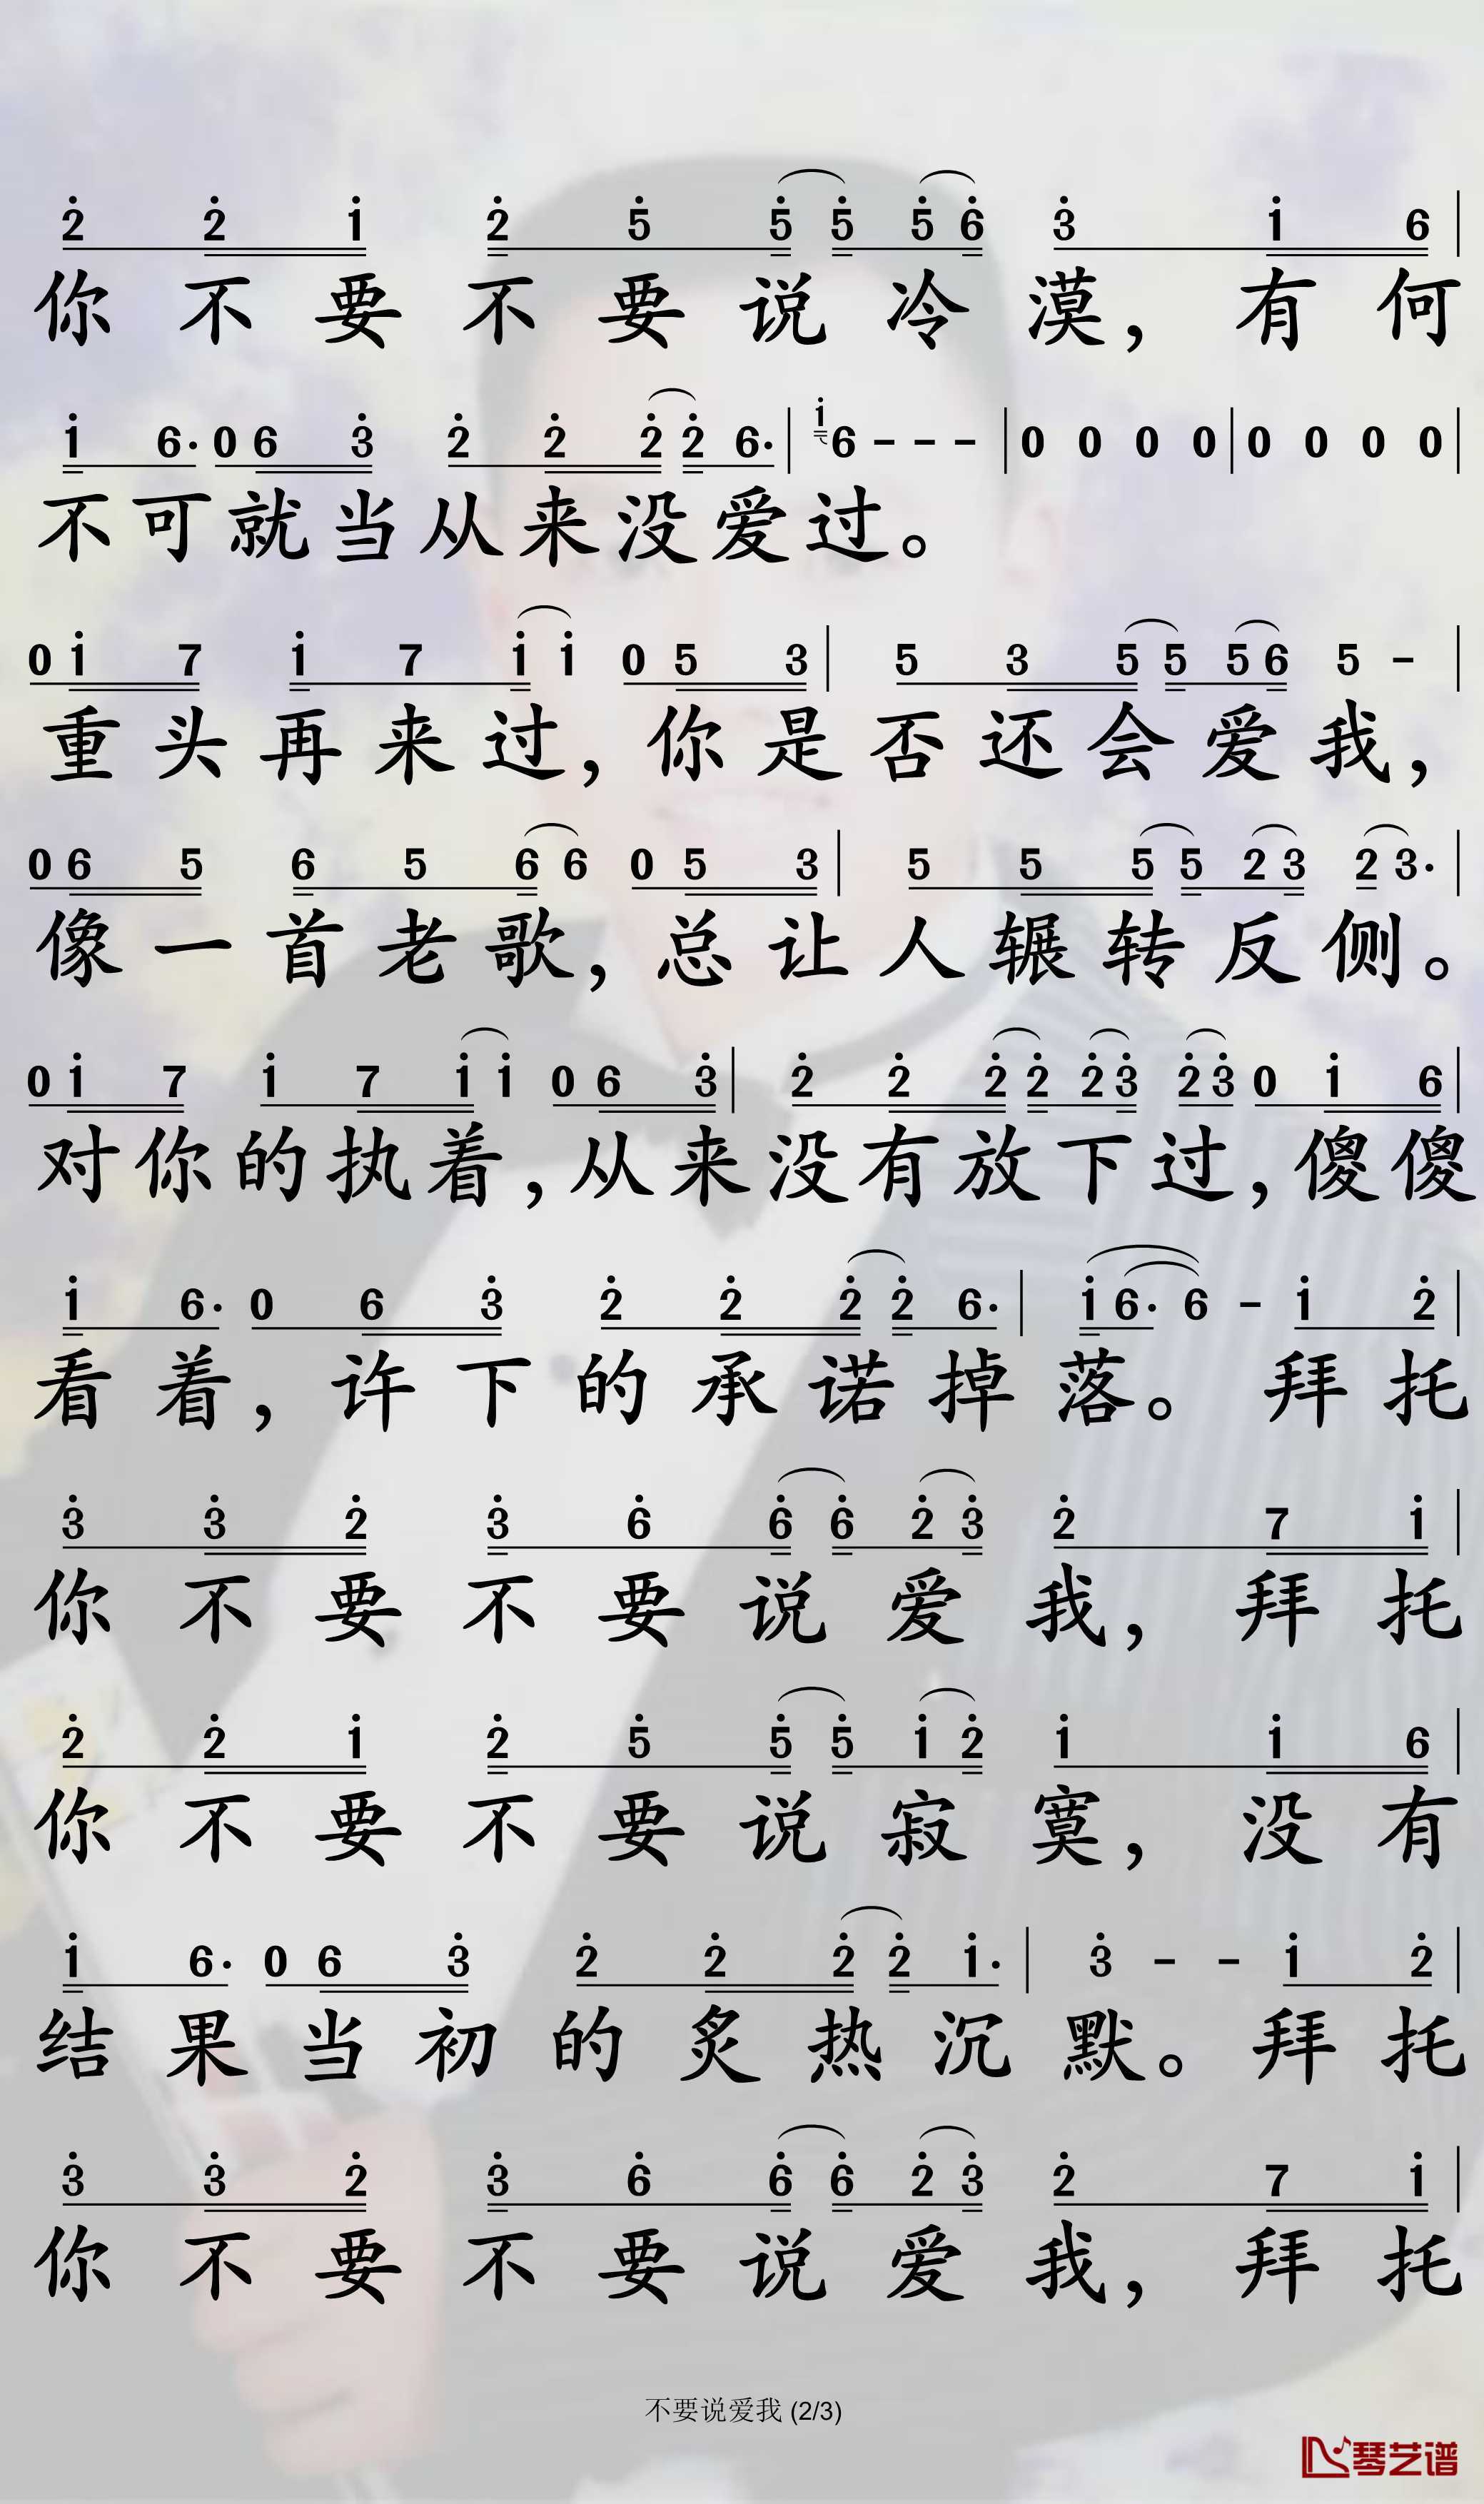 2 2 1 2 5 5 5 5 6 3 1 6
你不要不要说冷漠，有何
1 6· 0 6 3 2 2 2 2 6· 1 6 - - - 0 0 0 0 0 0 0 0
不可就当从来没爱过。
0 1 7 1 7 1 1 0 5 3 5 3 5 5 5 6 5 -
重头再来过，你是否还会爱我，
0 6 5 6 5 6 6 0 5 3 5 5 5 5 2 3 2 3·
像一首老歌，总让人辗转反侧。
0 1 7 1 7 1 1 0 6 3 2 2 2 2 2 3 2 3 0 1 6
对你的执着，从来没有放下过，傻傻
1 6· 0 6 3 2 2 2 2 6· 1 6· 6 - 1 2
看着，许下的承诺掉落。拜托
3 3 2 3 6 6 6 2 3 2 7 1
你不要不要说爱我，拜托
2 2 1 2 5 5 5 1 2 1 1 6
你不要不要说寂寞，没有
1 6· 0 6 3 2 2 2 2 1· 3 - - 1 2
结果当初的炙热沉默。拜托
3 3 2 3 6 6 6 2 3 2 7 1
你不要不要说爱我，拜托
不要说爱我 (2/3)
琴艺谱